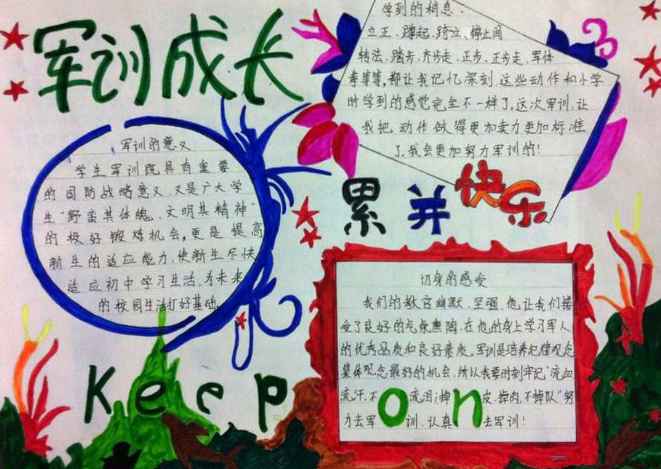 军训成长
学到的相息
立正、蹲起、跨立、停止间
转法、踏步、齐步走、正步、正步走、军体
拳等等,都让我记忆深刻.这些动作和小学
时学到的感觉完全不一样了,这次军训,让
我把动作做得更加卖力更加标准
了,我会更加努力军训的!
军训的意义
学生军训既具有重要
的国防战略意义、又是广大学
生“野蛮其体魄、文明其精神”
的极好锻炼机会,更是提高
新生的适应能力,使新生尽快
适应初中学习生活,为未来
的校园生活打好基础
累并快乐
切身的感受
我们的教官幽默、坚强,他让我们接
受了良好的气氛熏陶,在他的身上学习军人
的优秀品质和良好素质,军训是培养纪律观念
集体观念最好的机会.所以我要时刻牢记“流血
流汗,不流泪;掉皮、掉肉、不掉队”努
力去军训、认真去军训!
Keep on